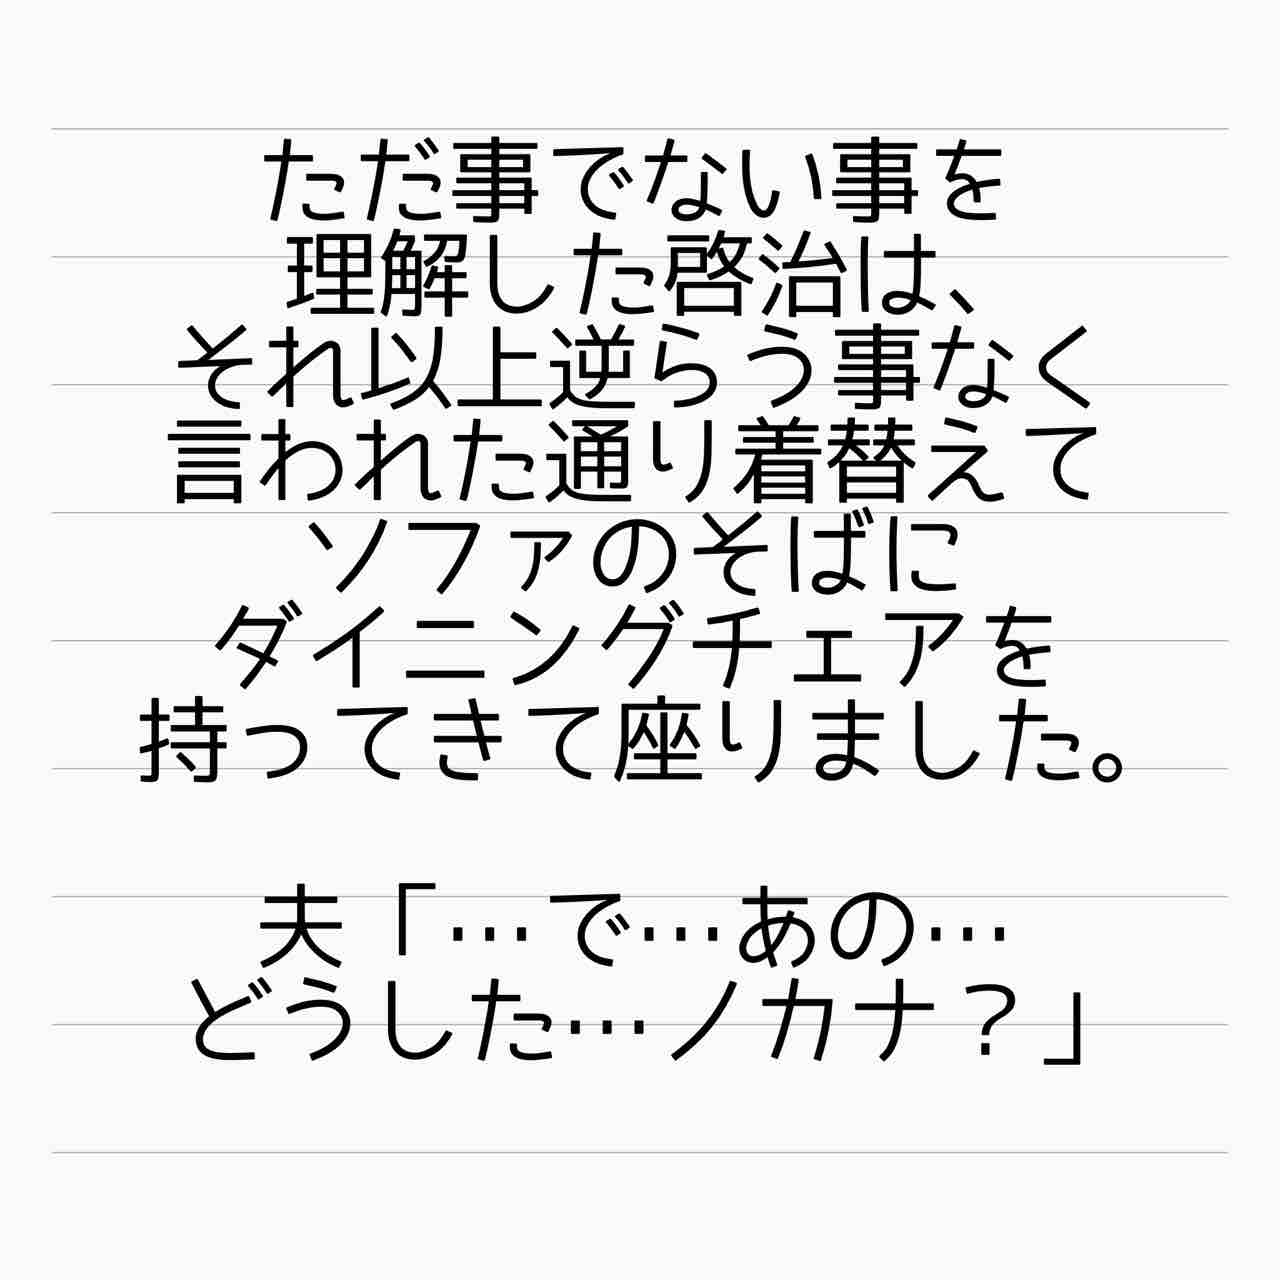 ただ事でない事を
理解した啓治は、
それ以上逆らう事なく
言われた通り着替えて
ソファのそばに
ダイニングチェアを
持ってきて座りました。
夫「…で…あの…
どうした…ノカナ？」